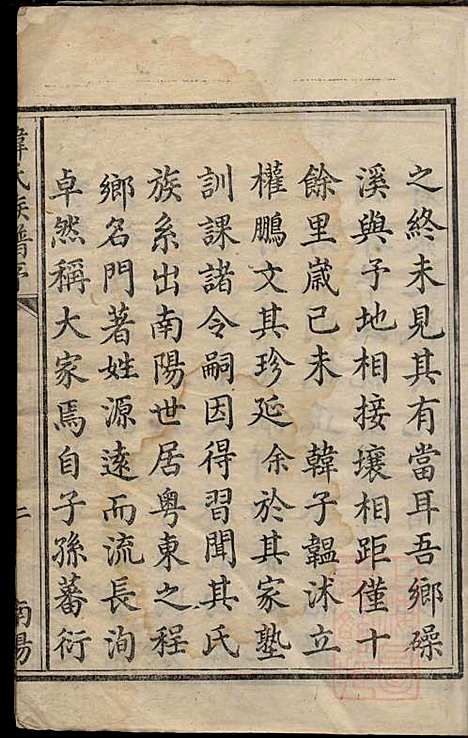 之終未見其有當耳吾鄉磜
溪與予地相接壤相距僅十
餘里嵗己未　韓子韞沭立
權鵬文其珍延余於其家塾
訓課諸令嗣因得習聞其氏
族系出南陽世居粤東之程
鄉名門著姓源遠而流長洵
卓然稱大家焉自子孫蕃衍
韓氏族譜序
二
南陽